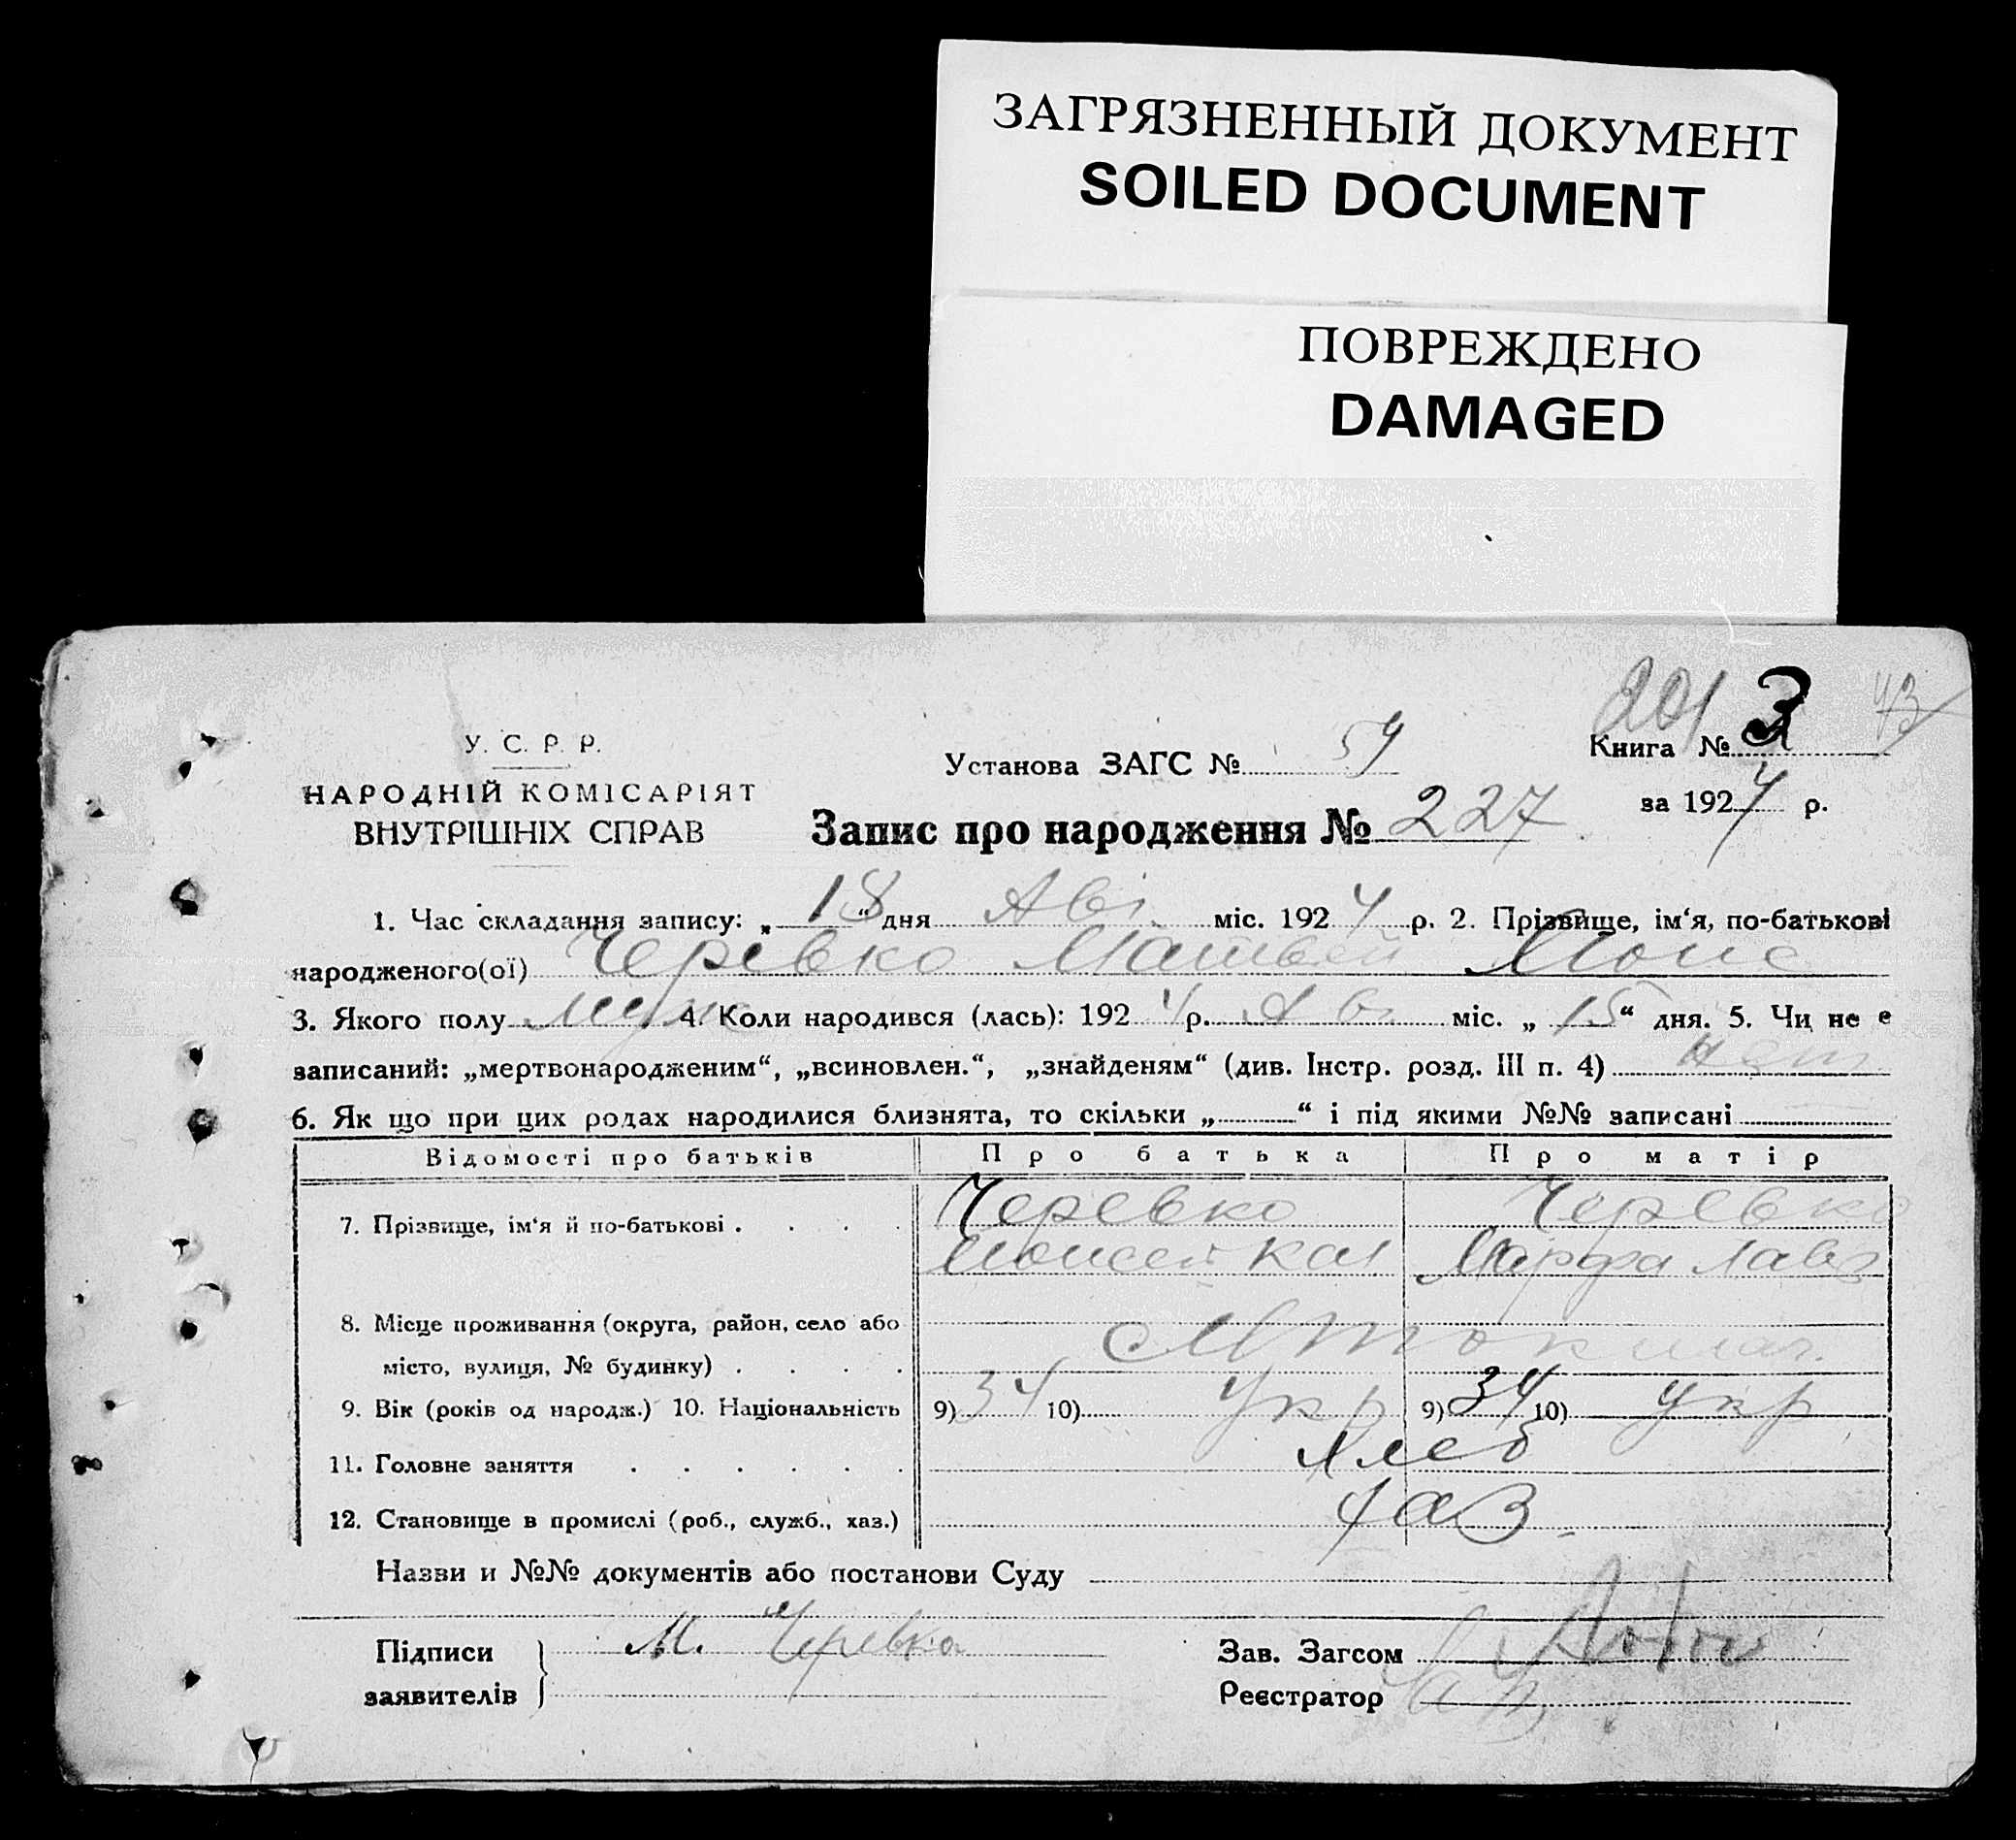 ЗАГРЯЗНЕННЫЙ ДОКУМЕНТ
SOILED DOCUMENT
ПОВРЕЖДЕНО
DAMAGED
201 3 43
У. С. Р. Р.
Установа ЗАГС № 54
Книга №
НАРОДНІЙ КОМІСАРІЯТ
за 1924 р.
ВНУТРІШНІХ СПРАВ
Запис про народження № 227
1. Час складання запису: „ 18 “ дня Авг. міс. 1924 р. 2. Прізвище, ім‘я, по-батькові
народженого(ої) Черевко Матвей Моис
3. Якого полу муж 4. Коли народився (лась): 1924 р. Авг. міс. „ 15 “ дня. 5. Чи не є
записаний: „мертвонародженим“, „всиновлен.“, „знайденям“ (див. Інстр. розд. III п. 4) нет
6. Як що при цих родах народилися близнята, то скільки „ “ і під якими №№ записані
Відомості про батьків Про батька Про матір
7. Прізвище, ім‘я й по-батькові . . . . Черевко Черевко
Моисей Кал Марфа Лавр
8. Місце проживання (округа, район, село або
місто, вулиця, № будинку) . . . .
9. Вік (років од народж.) 10. Національність 9) 34 10) Укр 9) 34 10) Укр
11. Головне заняття . . . . . . Хлеб
12. Становище в промислі (роб., служб., хаз.)
Назви и №№ документів або постанови Суду
Підписи М. Черевко Зав. Загсом
заявителів Реєстратор